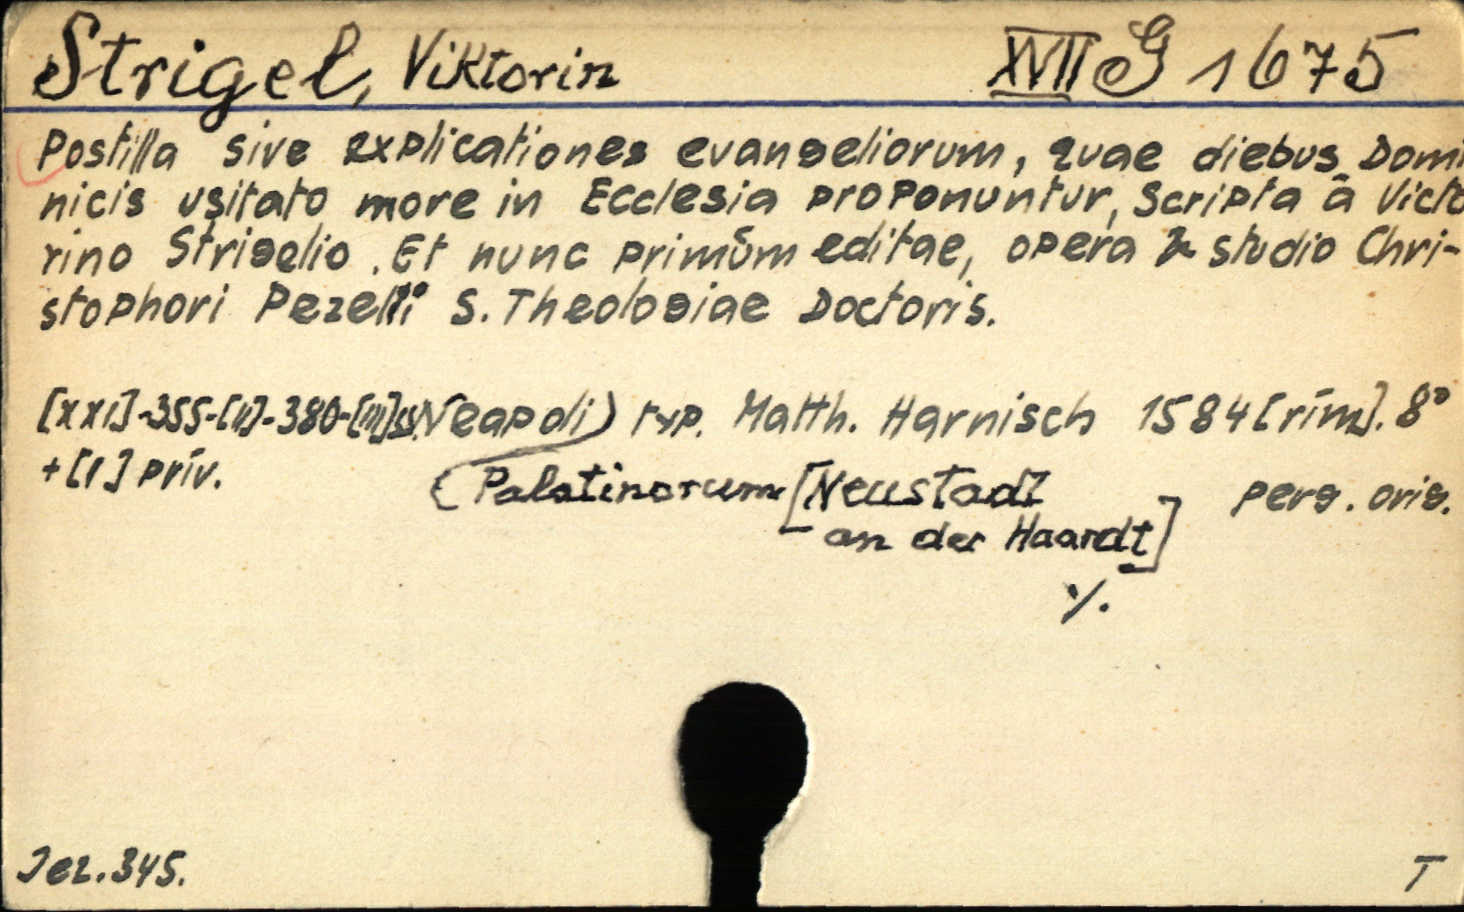 Strigel, Viktorin XVII G 1675
Postilla sive explicationes evangeliorum, quae diebus Domi
nicis usitato more in Ecclesia proponuntur, Scripta â Victo
rino Strigelio. Et nunc primûm editae, opera & studio Chri-
stophori Pezelii S. Theologiae Doctoris.
[XXI]-355-[II]-380-[III]ss. Neapoli) typ. Matth. Harnisch 1584 [rím]. 8°
+[1] priv.
(Palatinorum [Neustadt perg. orig.
an der Haardt]
%.
Jez. 345. T